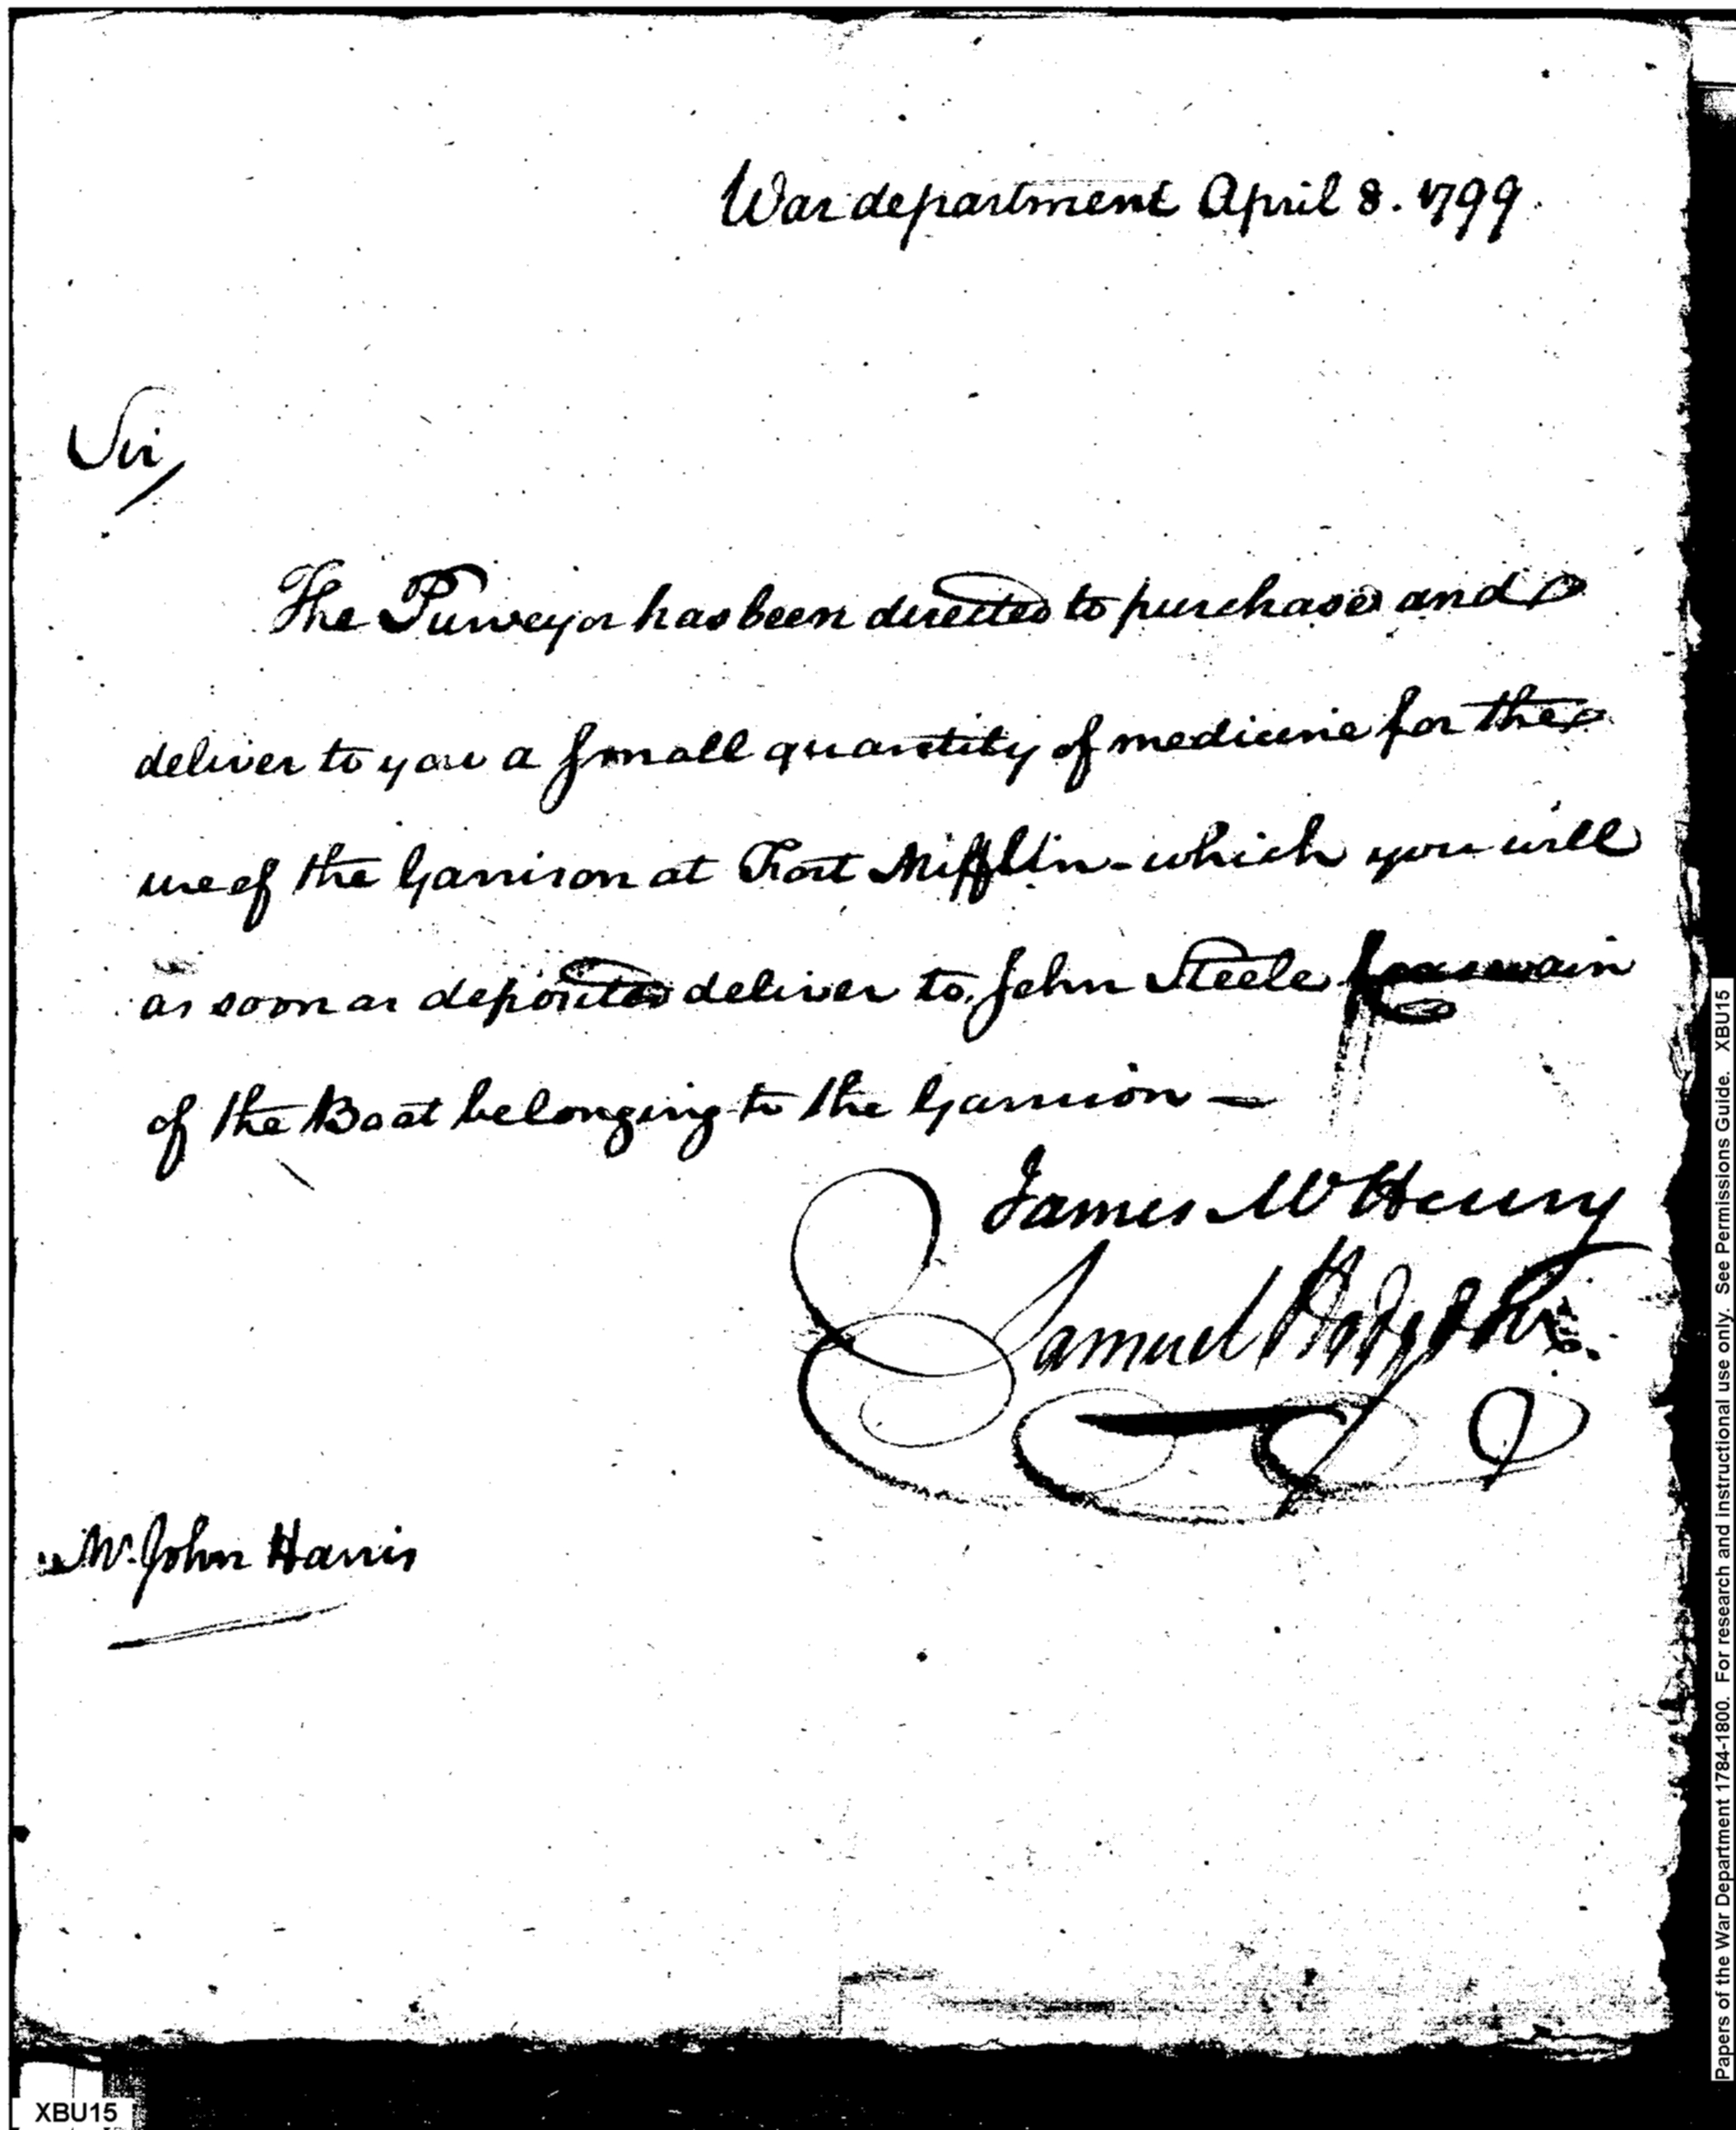 War department April 8. 1799.
Sir,
The Purveyor has been directed to purchase and
deliver to you a small quantity of medicine for the
use of the Garrison at Fort Mifflin - which you will
as soon as deposited deliver to John Steele
of the Boat belonging to the Garrison —
James McHenry
Samuel Hodgdon
Mr. John Harris
XBU15
Papers of the War Department 1784-1800. For research and instructional use only. See Permissions Guide. XBU15